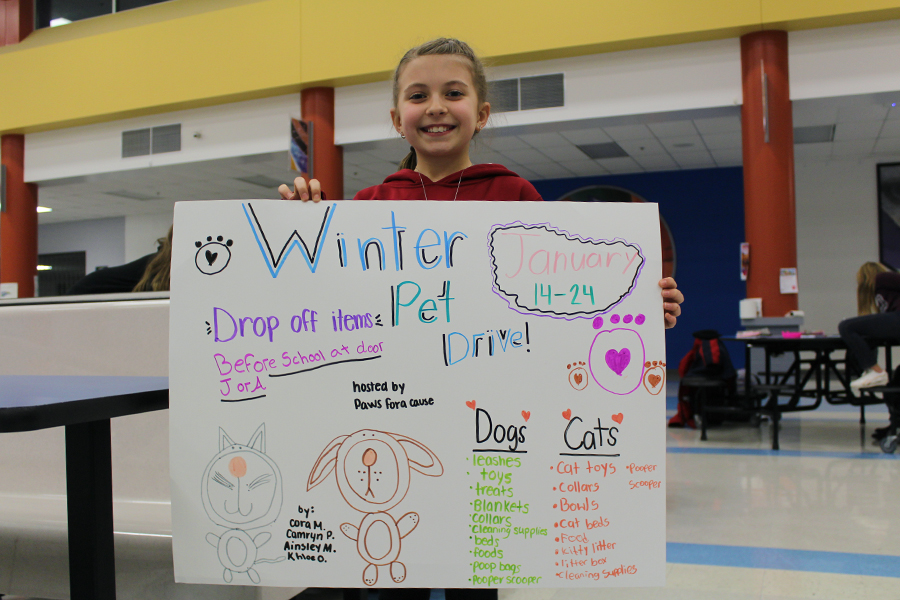 Winter
Pet
Drive!
January
14-24
Drop off items
Before School at door
J or A
hosted by
Paws for a cause
by:
Cora M.
Camryn P.
Ainsley M.
Khloe O.
Dogs
• leashes
• toys
• treats
• Blankets
• collars
• cleaning supplies
• beds
• foods
• poop bags
• pooper scooper
Cats
• Cat toys
• collars
• Bowls
• cat beds
• Food
• kitty litter
• litter box
• cleaning supplies
• Pooper
scooper